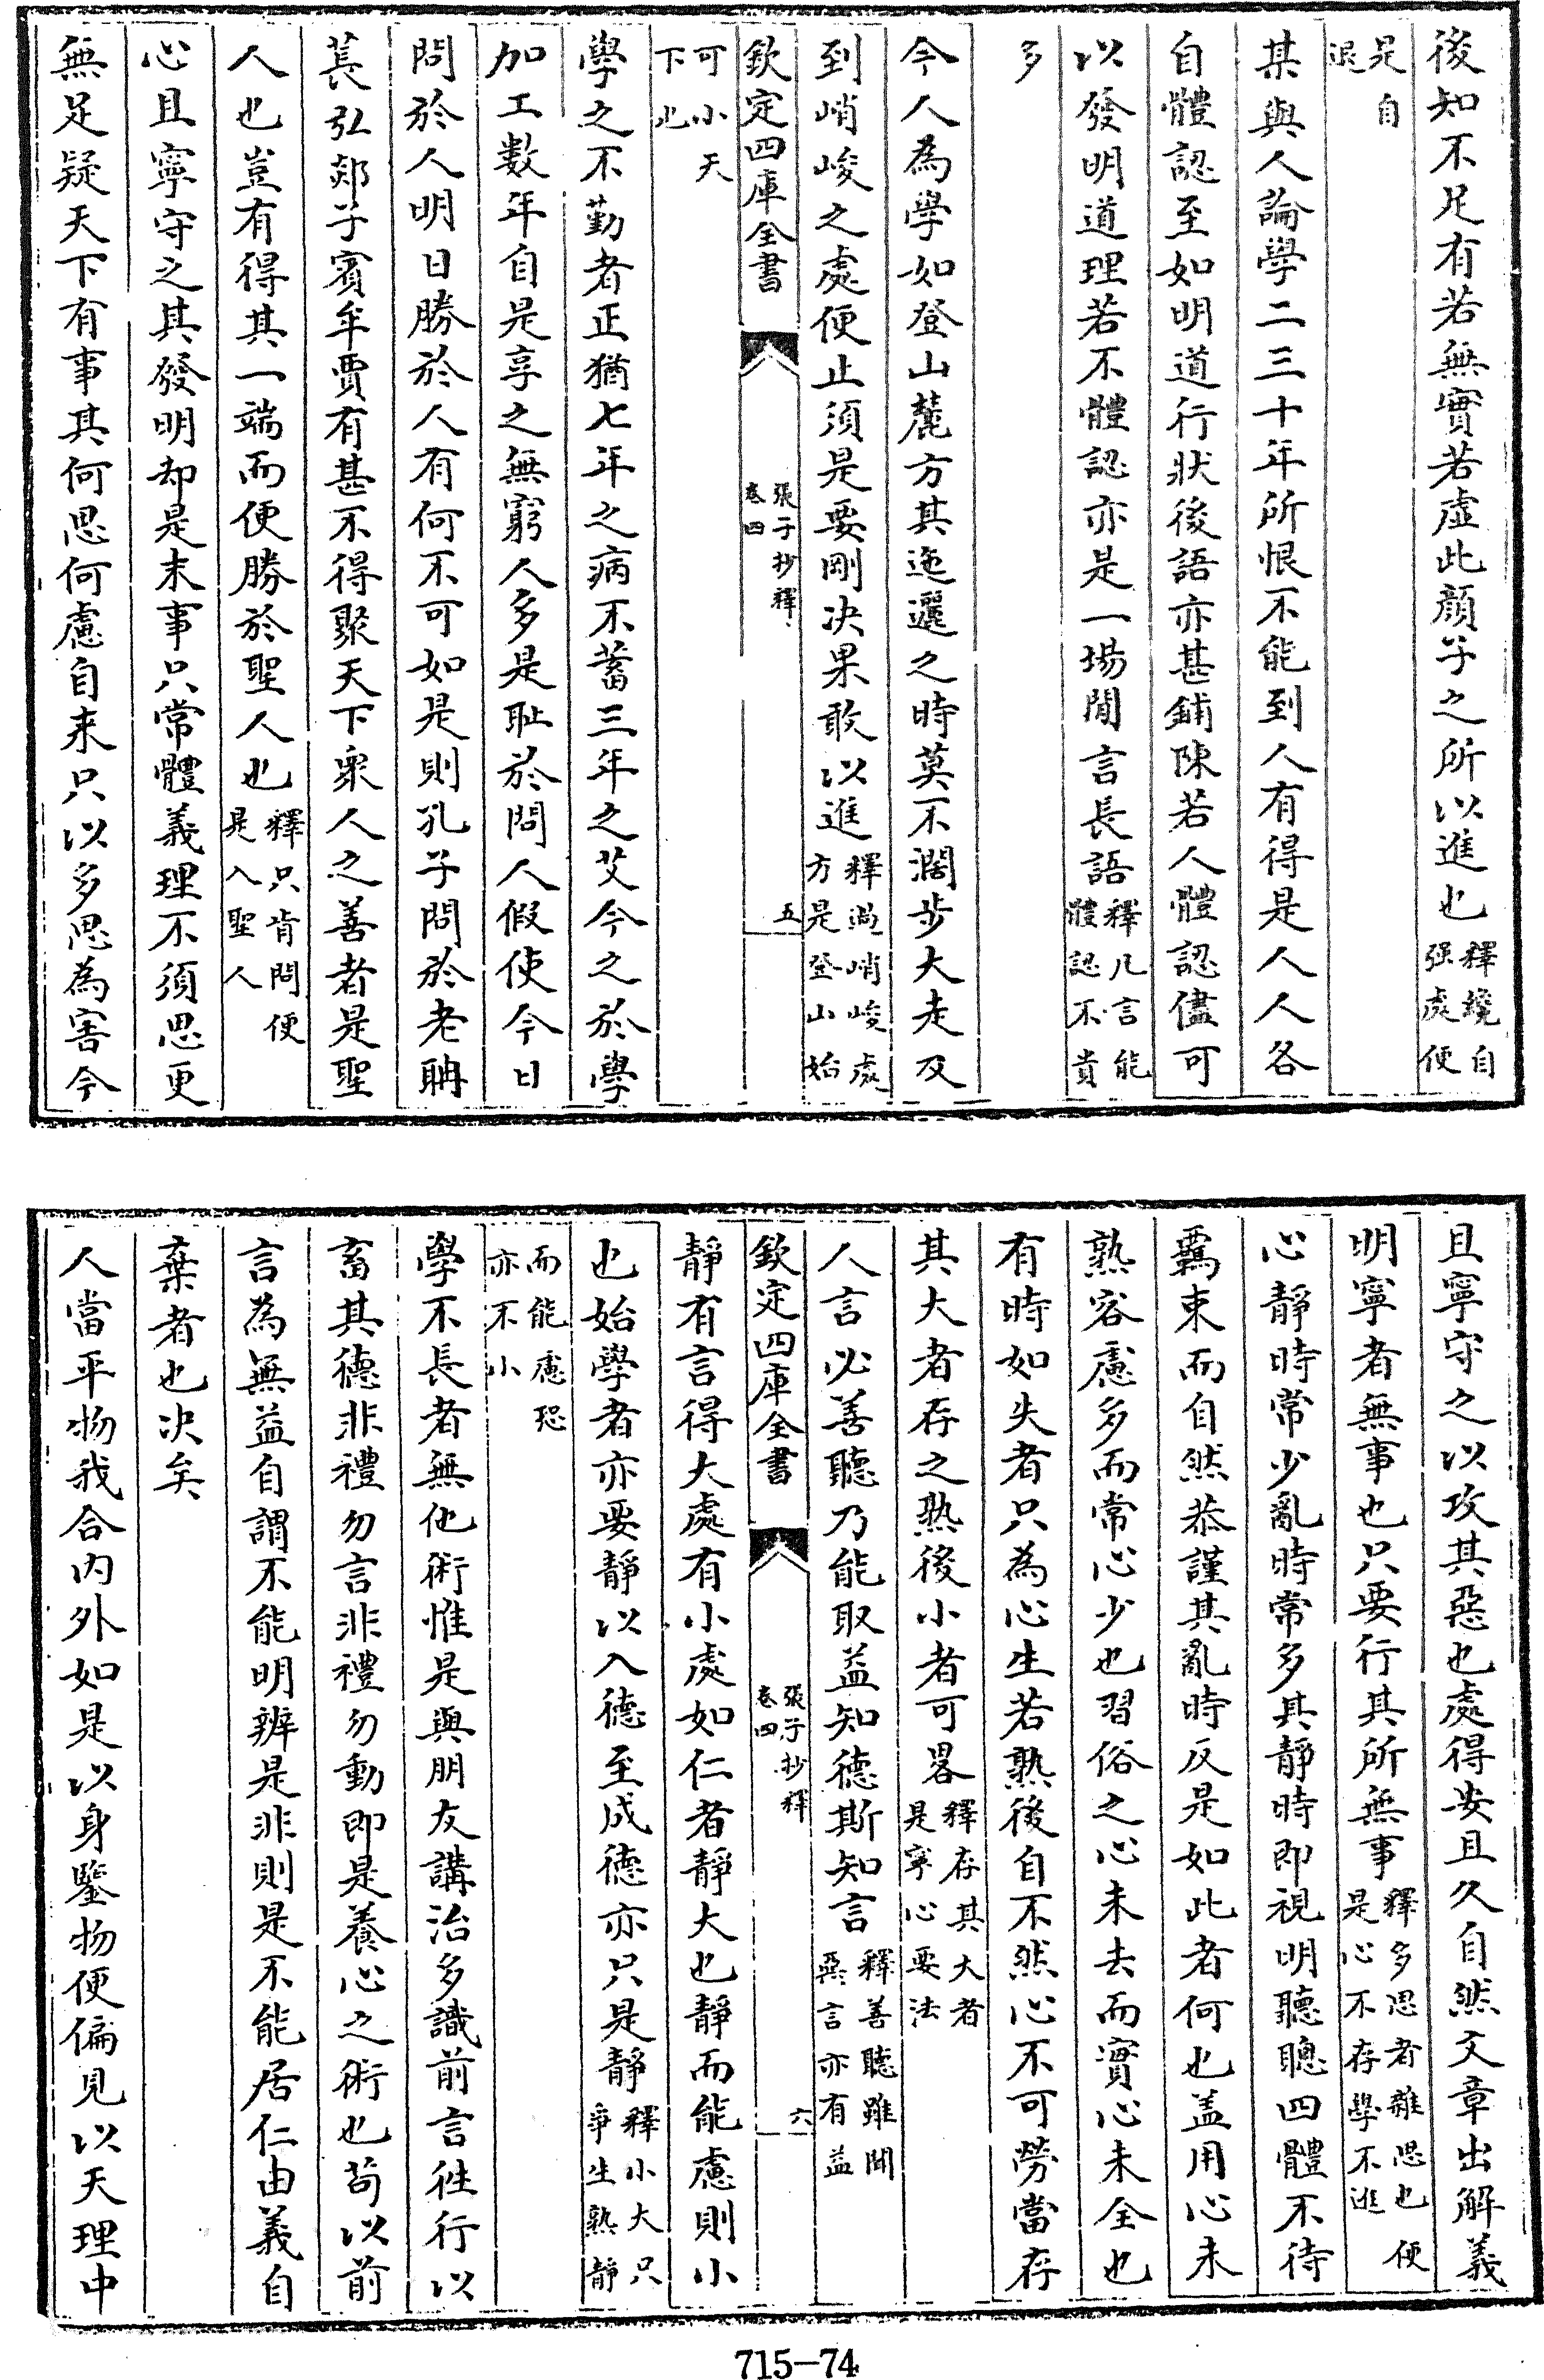 後知不足有若無實若虛此顔子之所以進也釋纔自强處便
是自退
某與人論學二三十年所恨不能到人有得是人人各
自體認至如明道行狀後語亦甚鋪陳若人體認儘可
以發明道理若不體認亦是一塲閒言長語釋凡言能體認不貴
多
今人為學如登山麓方其迤邐之時莫不濶步大走及
到峭峻之處便止須是要剛決果敢以進釋過峭峻處方是登山始
欽定四庫全書 張子抄釋卷四 五
可小天下也
學之不勤者正猶七年之病不蓄三年之艾今之於學
加工數年自是享之無窮人多是恥於問人假使今日
問於人明日勝於人有何不可如是則孔子問於老聃
萇弘郯子賓牟賈有甚不得聚天下衆人之善者是聖
人也豈有得其一端而便勝於聖人也釋只肯問便是入聖人
心且寧守之其發明却是末事只常體義理不須思更
無足疑天下有事其何思何慮自來只以多思為害今
且寧守之以攻其惡也處得安且久自然文章出解義
明寧者無事也只要行其所無事釋多思者雜思也便是心不存學不進
心靜時常少亂時常多其靜時即視明聽聰四體不待
羈束而自然恭謹其亂時反是如此者何也盖用心未
熟容慮多而常心少也習俗之心未去而實心未全也
有時如失者只為心生若熟後自不然心不可勞當存
其大者存之熟後小者可畧釋存其大者是寧心要法
人言必善聽乃能取益知德斯知言釋善聽雖聞惡言亦有益
欽定四庫全書 張子抄釋卷四 六
靜有言得大處有小處如仁者靜大也靜而能慮則小
也始學者亦要靜以入德至成德亦只是靜釋小大只爭生熟靜
而能慮恐亦不小
學不長者無他術惟是與朋友講治多識前言徃行以
畜其德非禮勿言非禮勿動即是養心之術也苟以前
言為無益自謂不能明辨是非則是不能居仁由義自
棄者也决矣
人當平物我合内外如是以身鑒物便偏見以天理中
715-74